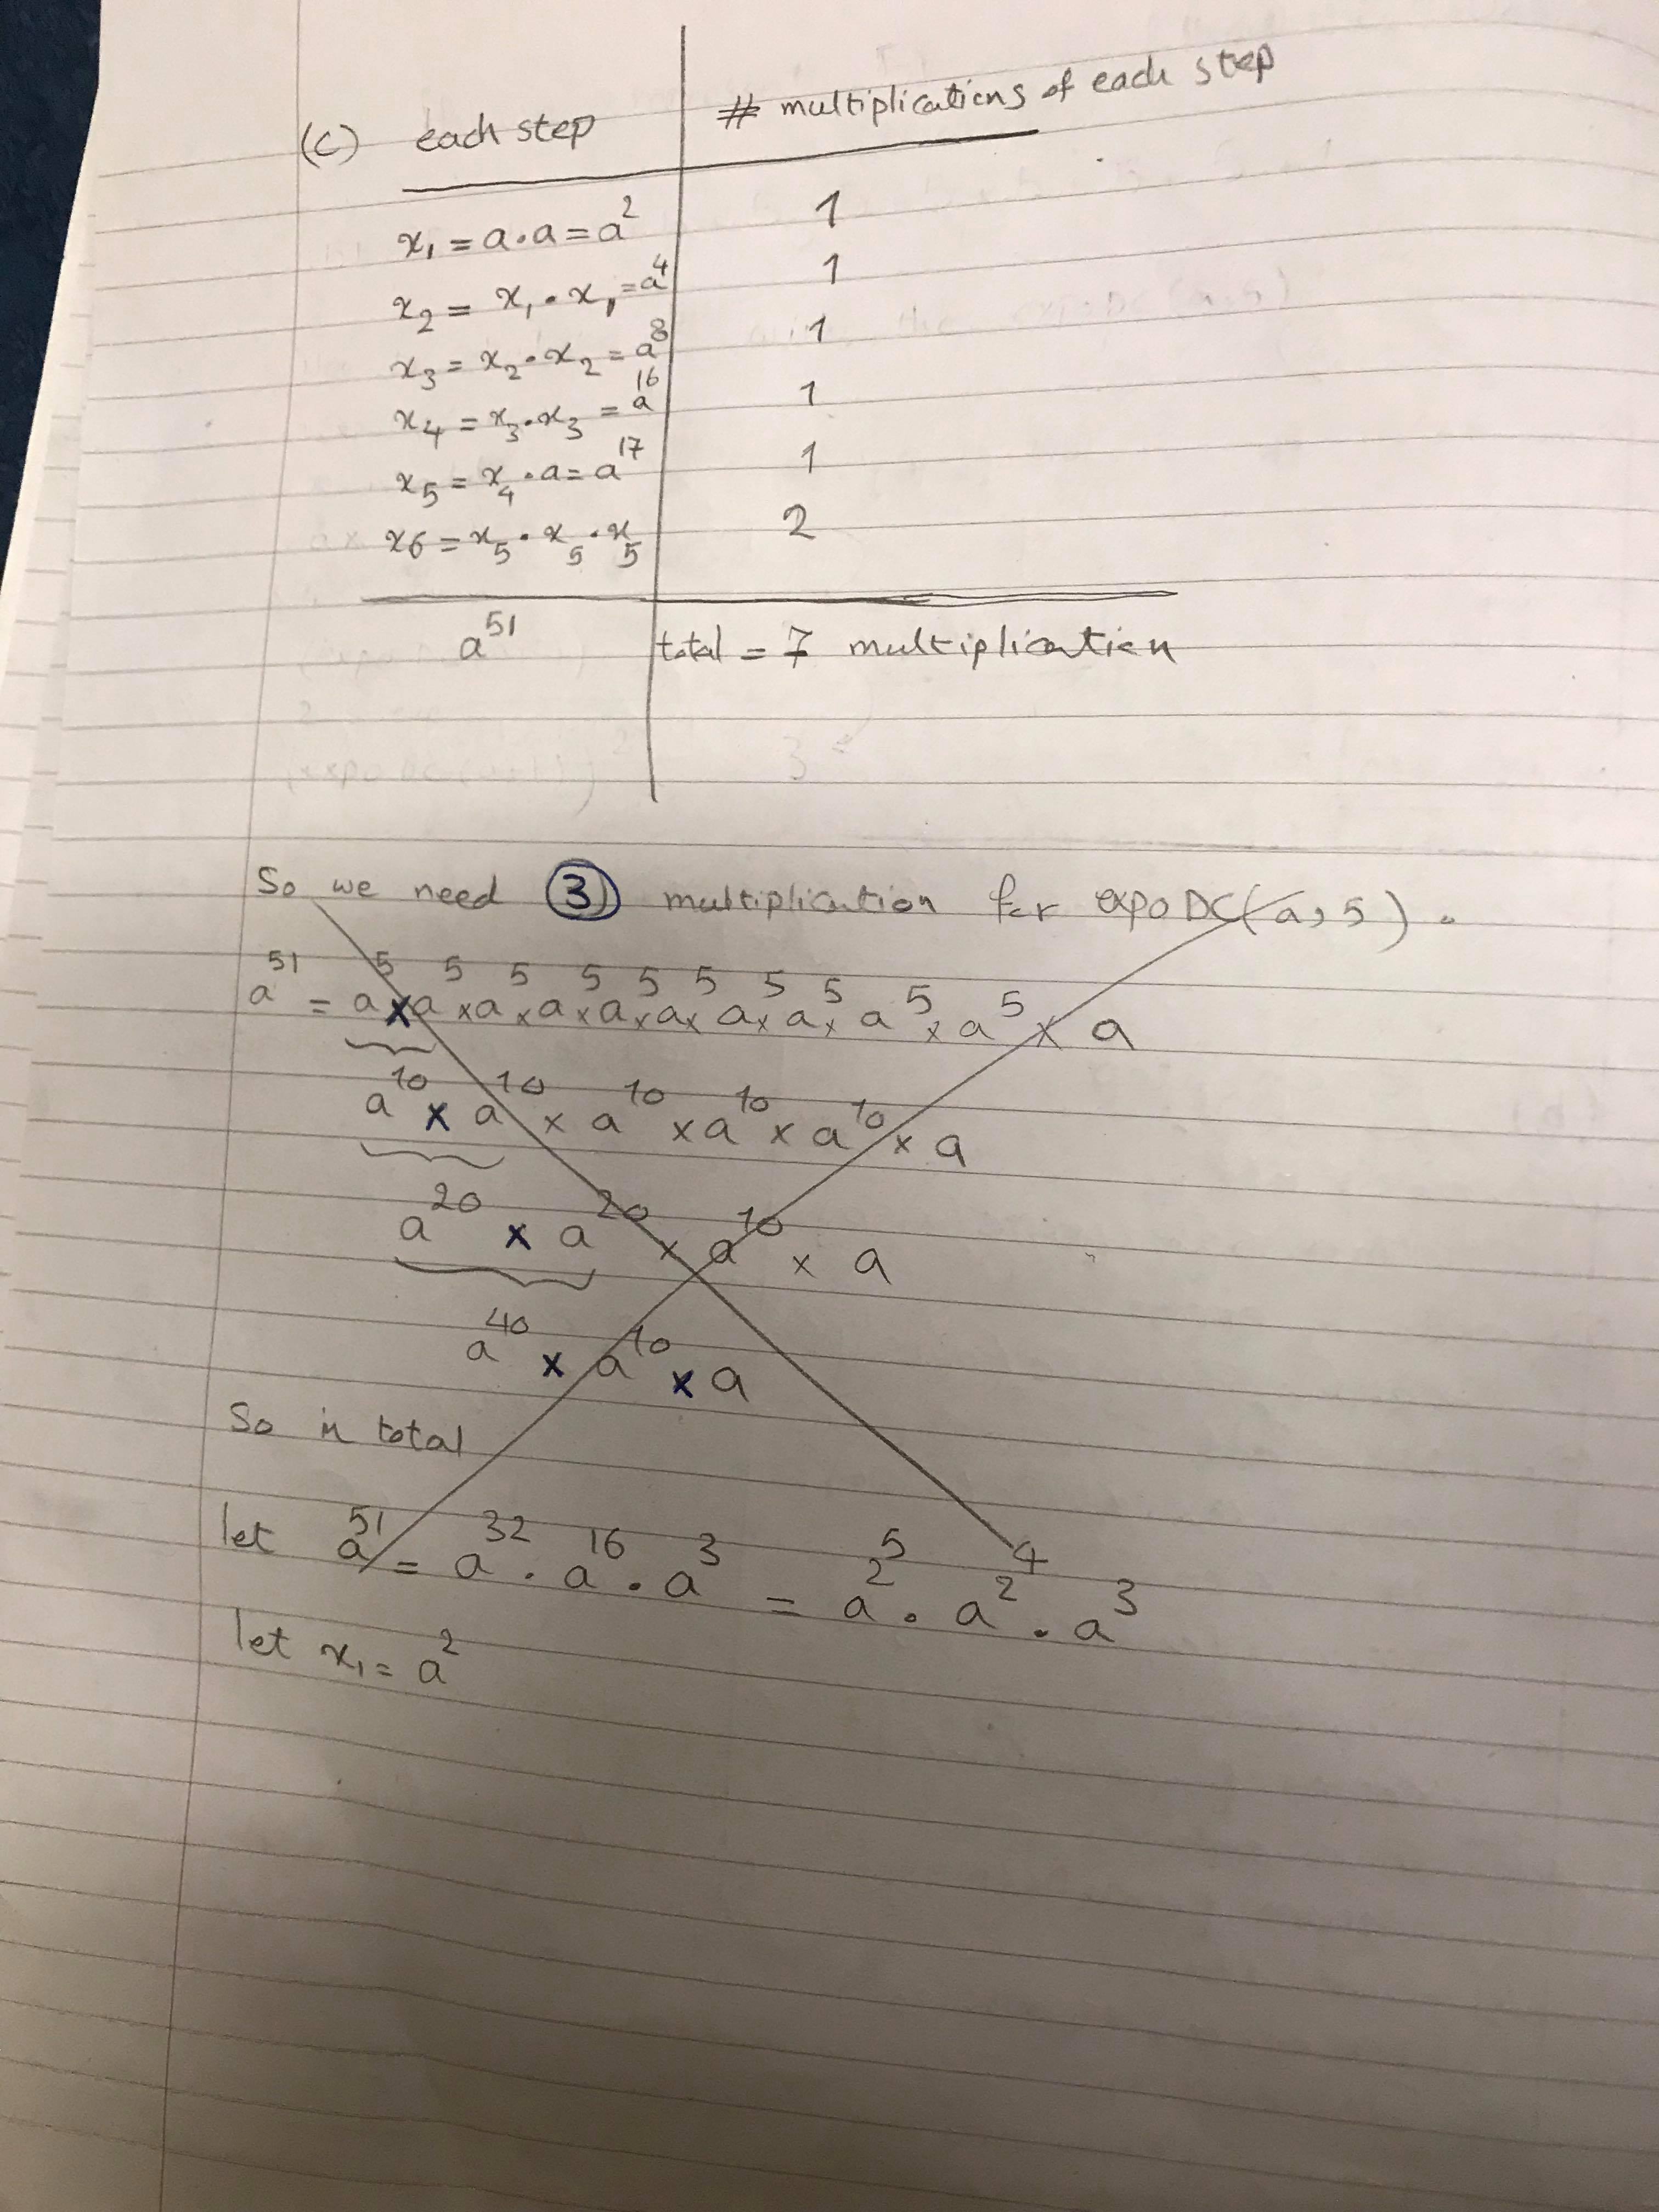 (C) each step # multiplications of each step
x₁ = a·a = a² 1
x₂ = x₁·x₁ = a⁴ 1
x₃ = x₂·x₂ = a⁸ 1
x₄ = x₃·x₃ = a¹⁶ 1
x₅ = x₄·a = a¹⁷ 1
x6 = x₅·x₅·x₅ 2
a⁵¹ total = 7 multiplication
So we need 3 multiplication for expoDC(a,5).
a⁵¹ = a⁵ × a⁵ × a⁵ × a⁵ × a⁵ × a⁵ × a⁵ × a⁵ × a⁵ × a⁵ × a
a¹⁰ × a¹⁰ × a¹⁰ × a¹⁰ × a¹⁰ × a
a²⁰ × a²⁰ × a¹⁰ × a
a⁴⁰ × a¹⁰ × a
So in total
let a⁵¹ = a³² · a¹⁶ · a³ = a^2^5 · a^2^4 · a³
let x₁ = a²